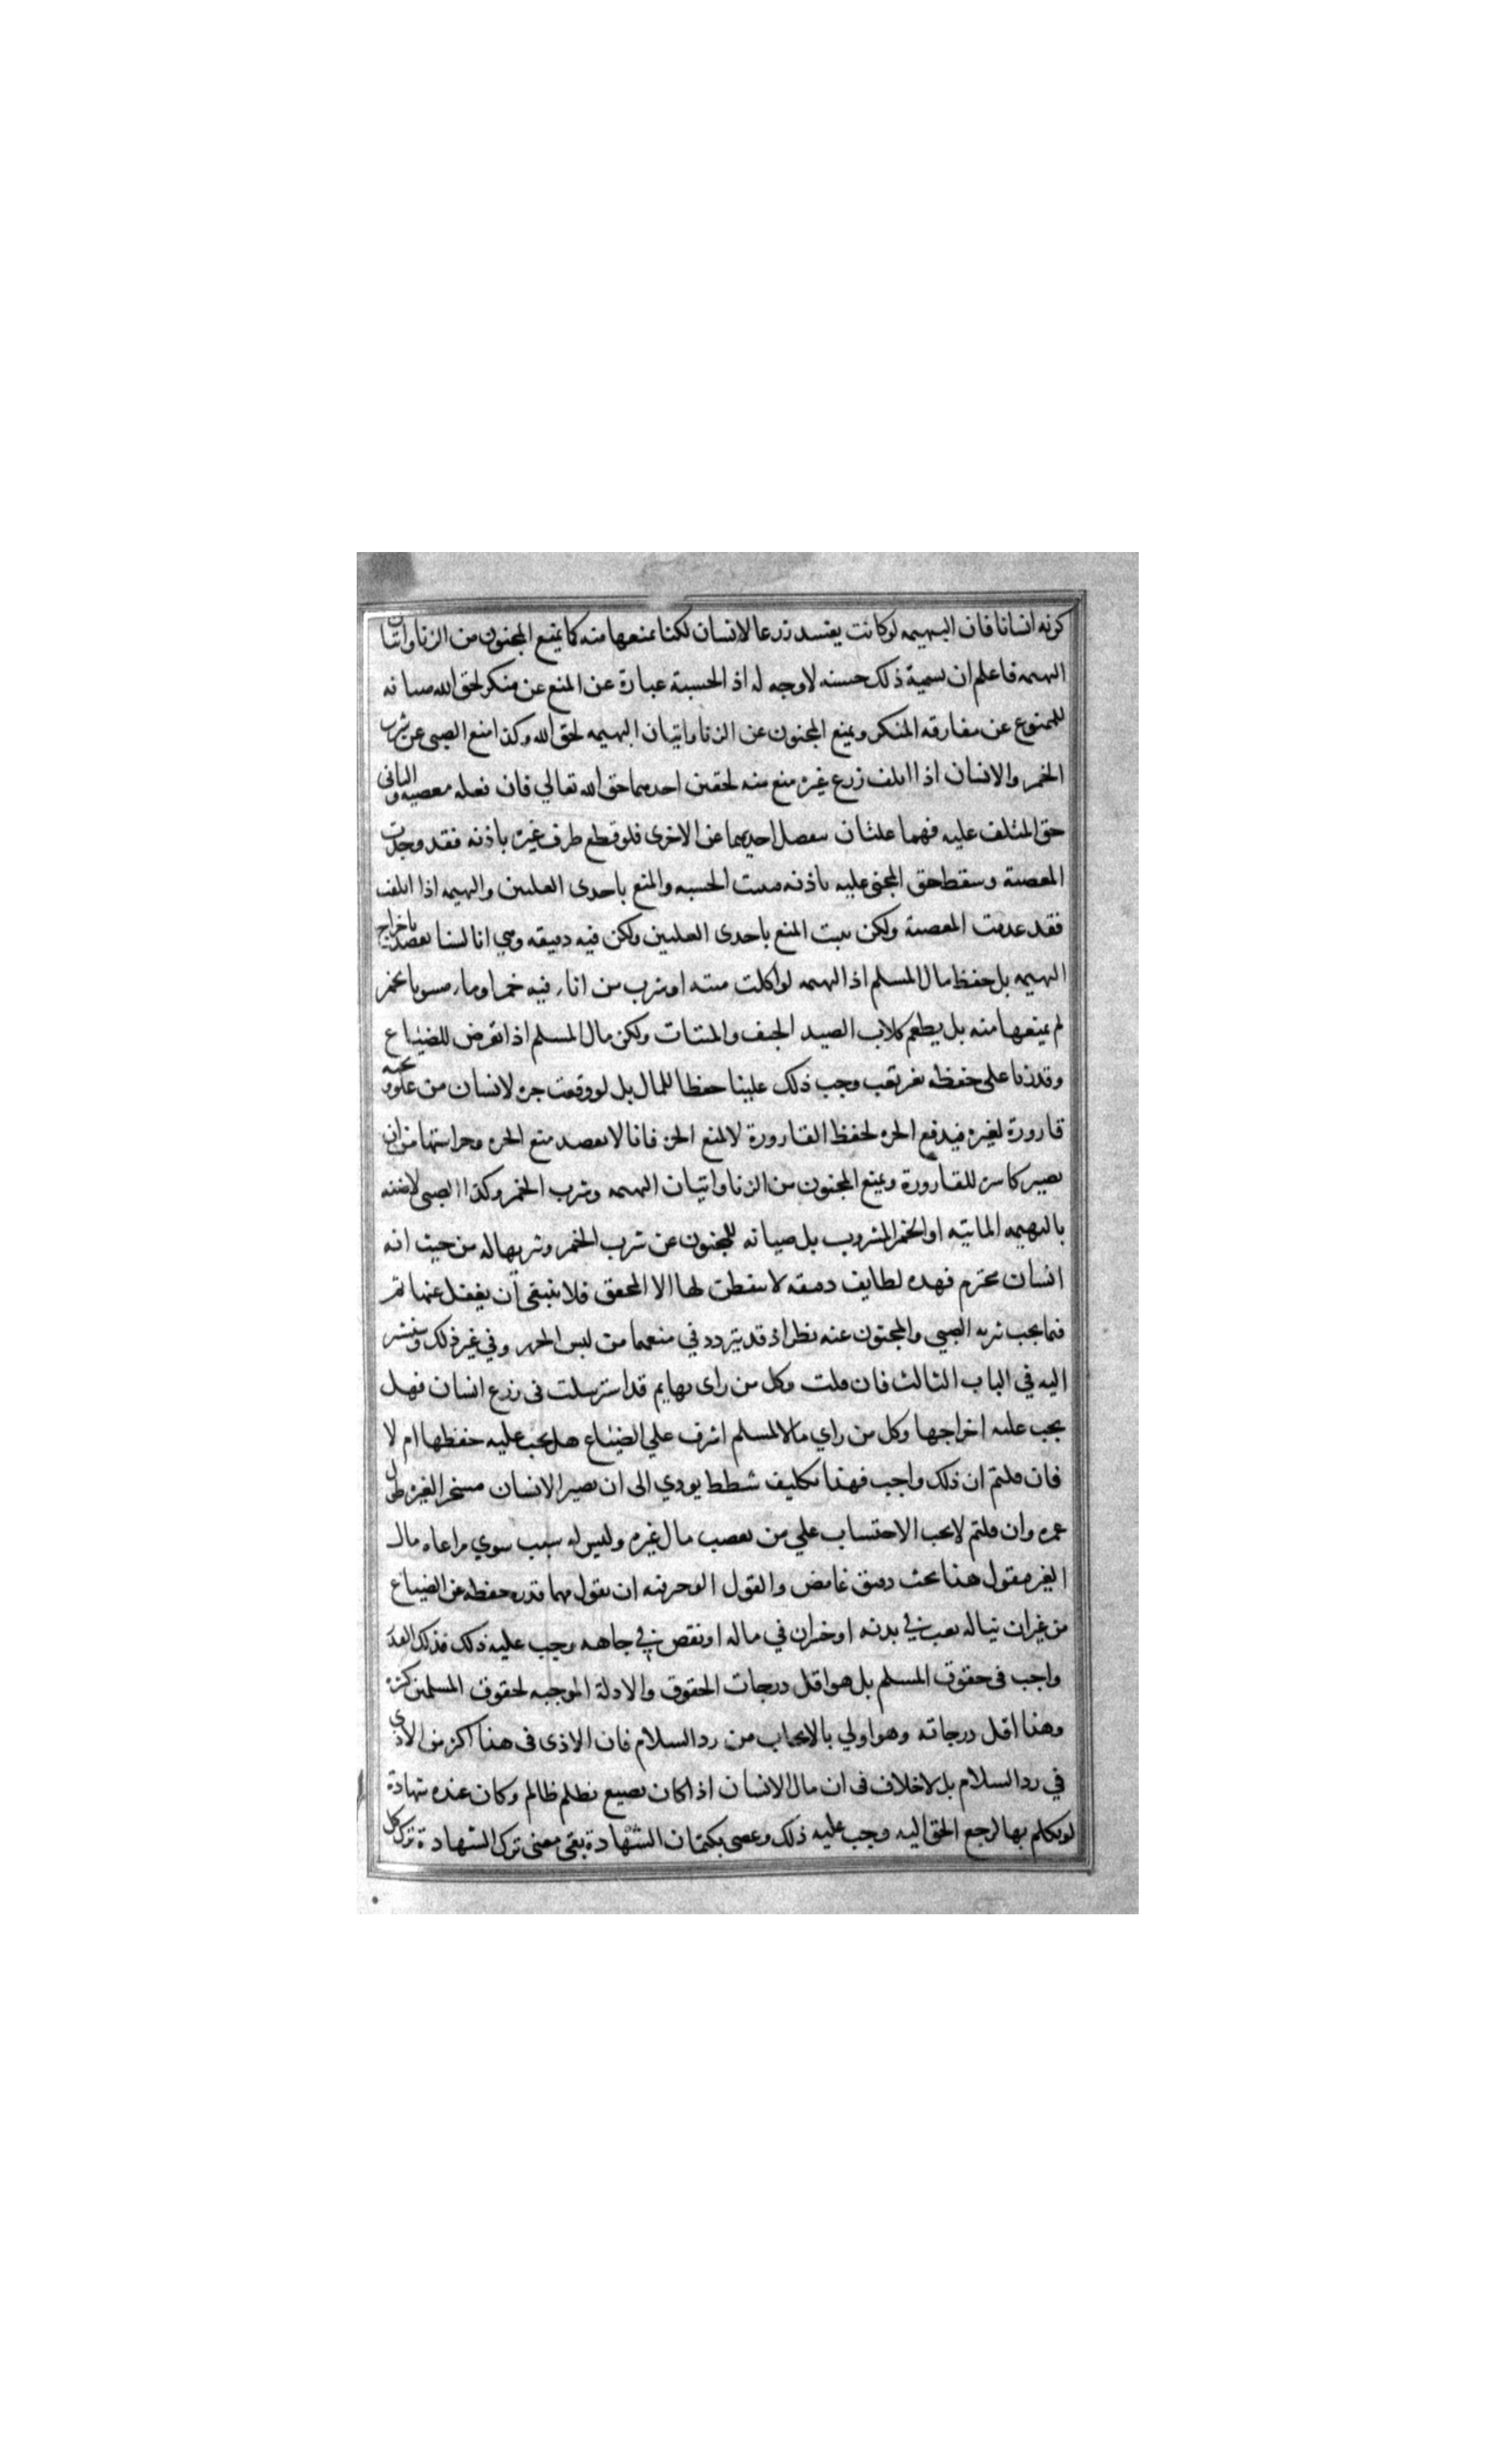 كونه انسانا فان البهيمه لوكانت يفسد زرعا لانسان لكنا نمنعها منه كما يمنع المجنون من الزنا واتيان
البهيمه فاعلم ان تسمية ذلك حسبه لاوجه له اذ الحسبة عبارة عن المنع عن منكر لحق الله صيانه
للممنوع عن مقارفه المنكر ويمنع المجنون عن الزنا واتيان البهيمه لحق الله وكذا منع الصبي عن شرب
الخمر والانسان اذا اتلف زرع غيره منع منه لحقين احدهما حق الله تعالي فان فعله معصيه والثانى
حق المتلف عليه فهما علتان تنفصل احديهما عن الاخرى فلو قطع طرف غيره باذنه فقد وجدت
المعصية وسقط حق المجنى عليه باذنه فيثبت الحسبه والمنع باحدى العلتين والبهيمه اذا اتلفت
فقد عدمت المعصية ولكن يثبت المنع باحدى العلتين ولكن فيه دقيقه وهي انا لسنا نقصد باخراج
البهيمه بل حفظ مال المسلم اذ البهيمه لو اكلت ميته او شرب من اناء فيه خمر او ماء مشوبا بخمر
لم نمنعها منه بل يطعم كلاب الصيد الجيف والميتات ولكن مال المسلم اذا تعرض للضياع
وقدرنا على حفظه بغير تعب وجب ذلك علينا حفظا للمال بل لو وقعت جره لانسان من علو وتحته
قارورة لغيره فيدفع الجره لحفظ القارورة لا لمنع الجره فانا لا نقصد منع الجره وحراستها من ان
تصير كاسره للقارورة ويمنع المجنون من الزنا واتيان البهيمه وشرب الخمر وكذا الصبى لا ضنه
بالبهيمه الماتيه او الخمر المشروب بل صيانه للمجنون عن شرب الخمر وشربها له من حيث انه
انسان محترم فهذه لطايف دقيقه لا يتفطن لها الا المحقق فلا ينبغى ان يغفل عنها ثم
فيما يجب تنزيه الصبي والمجنون عنه نظر اذ قد يتردد في منعهما من لبس الحرير وفي غير ذلك وسنشير
اليه في الباب الثالث فان قلت وكل من راى بهايم قد استرسلت فى زرع انسان فهل
يجب عليه اخراجها وكل من راي مالا لمسلم اشرف علي الضياع هل يجب عليه حفظها ام لا
فان قلتم ان ذلك واجب فهذا تكليف شطط يودي الى ان يصير الانسان مسخرا لغيره طول
عمره وان قلتم لا يجب الاحتساب علي من يغصب مال غيره وليس له سبب سوي مراعاه مال
الغير فنقول هذا بحث دقيق غامض والقول الوجيز فيه ان نقول مهما قدر حفظه عن الضياع
من غير ان يناله تعب في بدنه او خسران في ماله او نقص في جاهه وجب عليه ذلك فذلك القدر
واجب فى حقوق المسلم بل هو اقل درجات الحقوق والادلة الموجبه لحقوق المسلمين كثيره
وهذا اقل درجاته وهو اولي بالايجاب من رد السلام فان الاذى فى هذا اكثر من الاذى
في رد السلام بل لا خلاف فى ان مال الانسان اذا كان يضيع بظلم ظالم وكان عنده شهادة
لو تكلم بها لرجع الحق اليه وجب عليه ذلك وعصى بكتمان الشهادة بقى معنى ترك الشهادة ترك كل